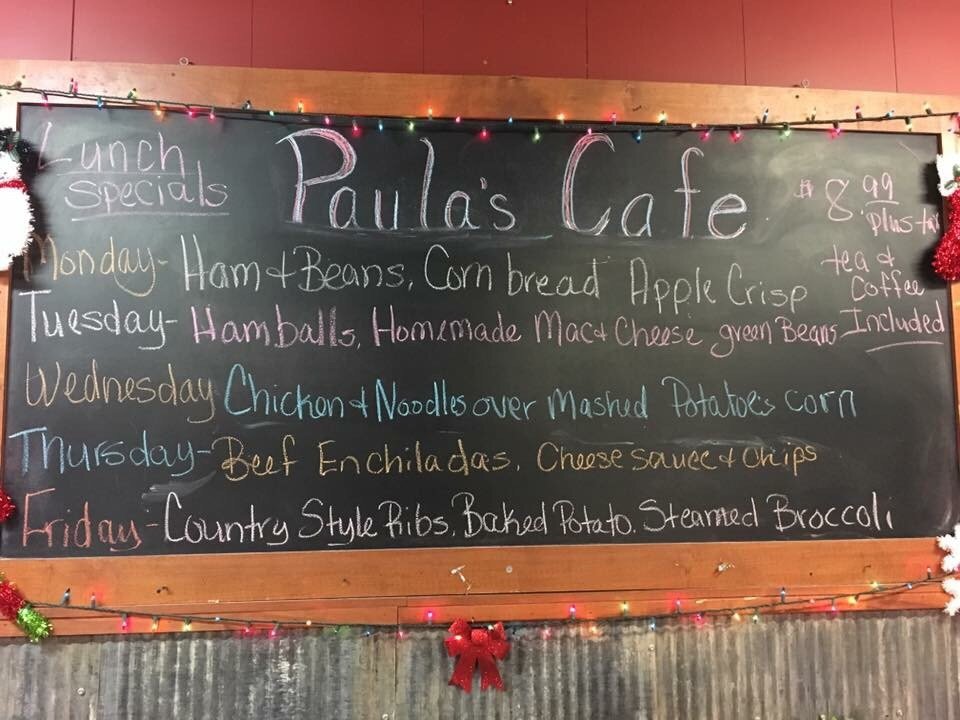 Lunch specials
Paula's Cafe
$8.99 plus tax
tea & coffee Included
Monday- Ham & Beans, Corn bread Apple Crisp
Tuesday- Hamballs, Homemade Mac & Cheese green Beans
Wednesday Chicken & Noodles over Mashed Potatoes corn
Thursday- Beef Enchiladas, Cheese sauce & chips
Friday- Country Style Ribs, Baked Potato. Steamed Broccoli